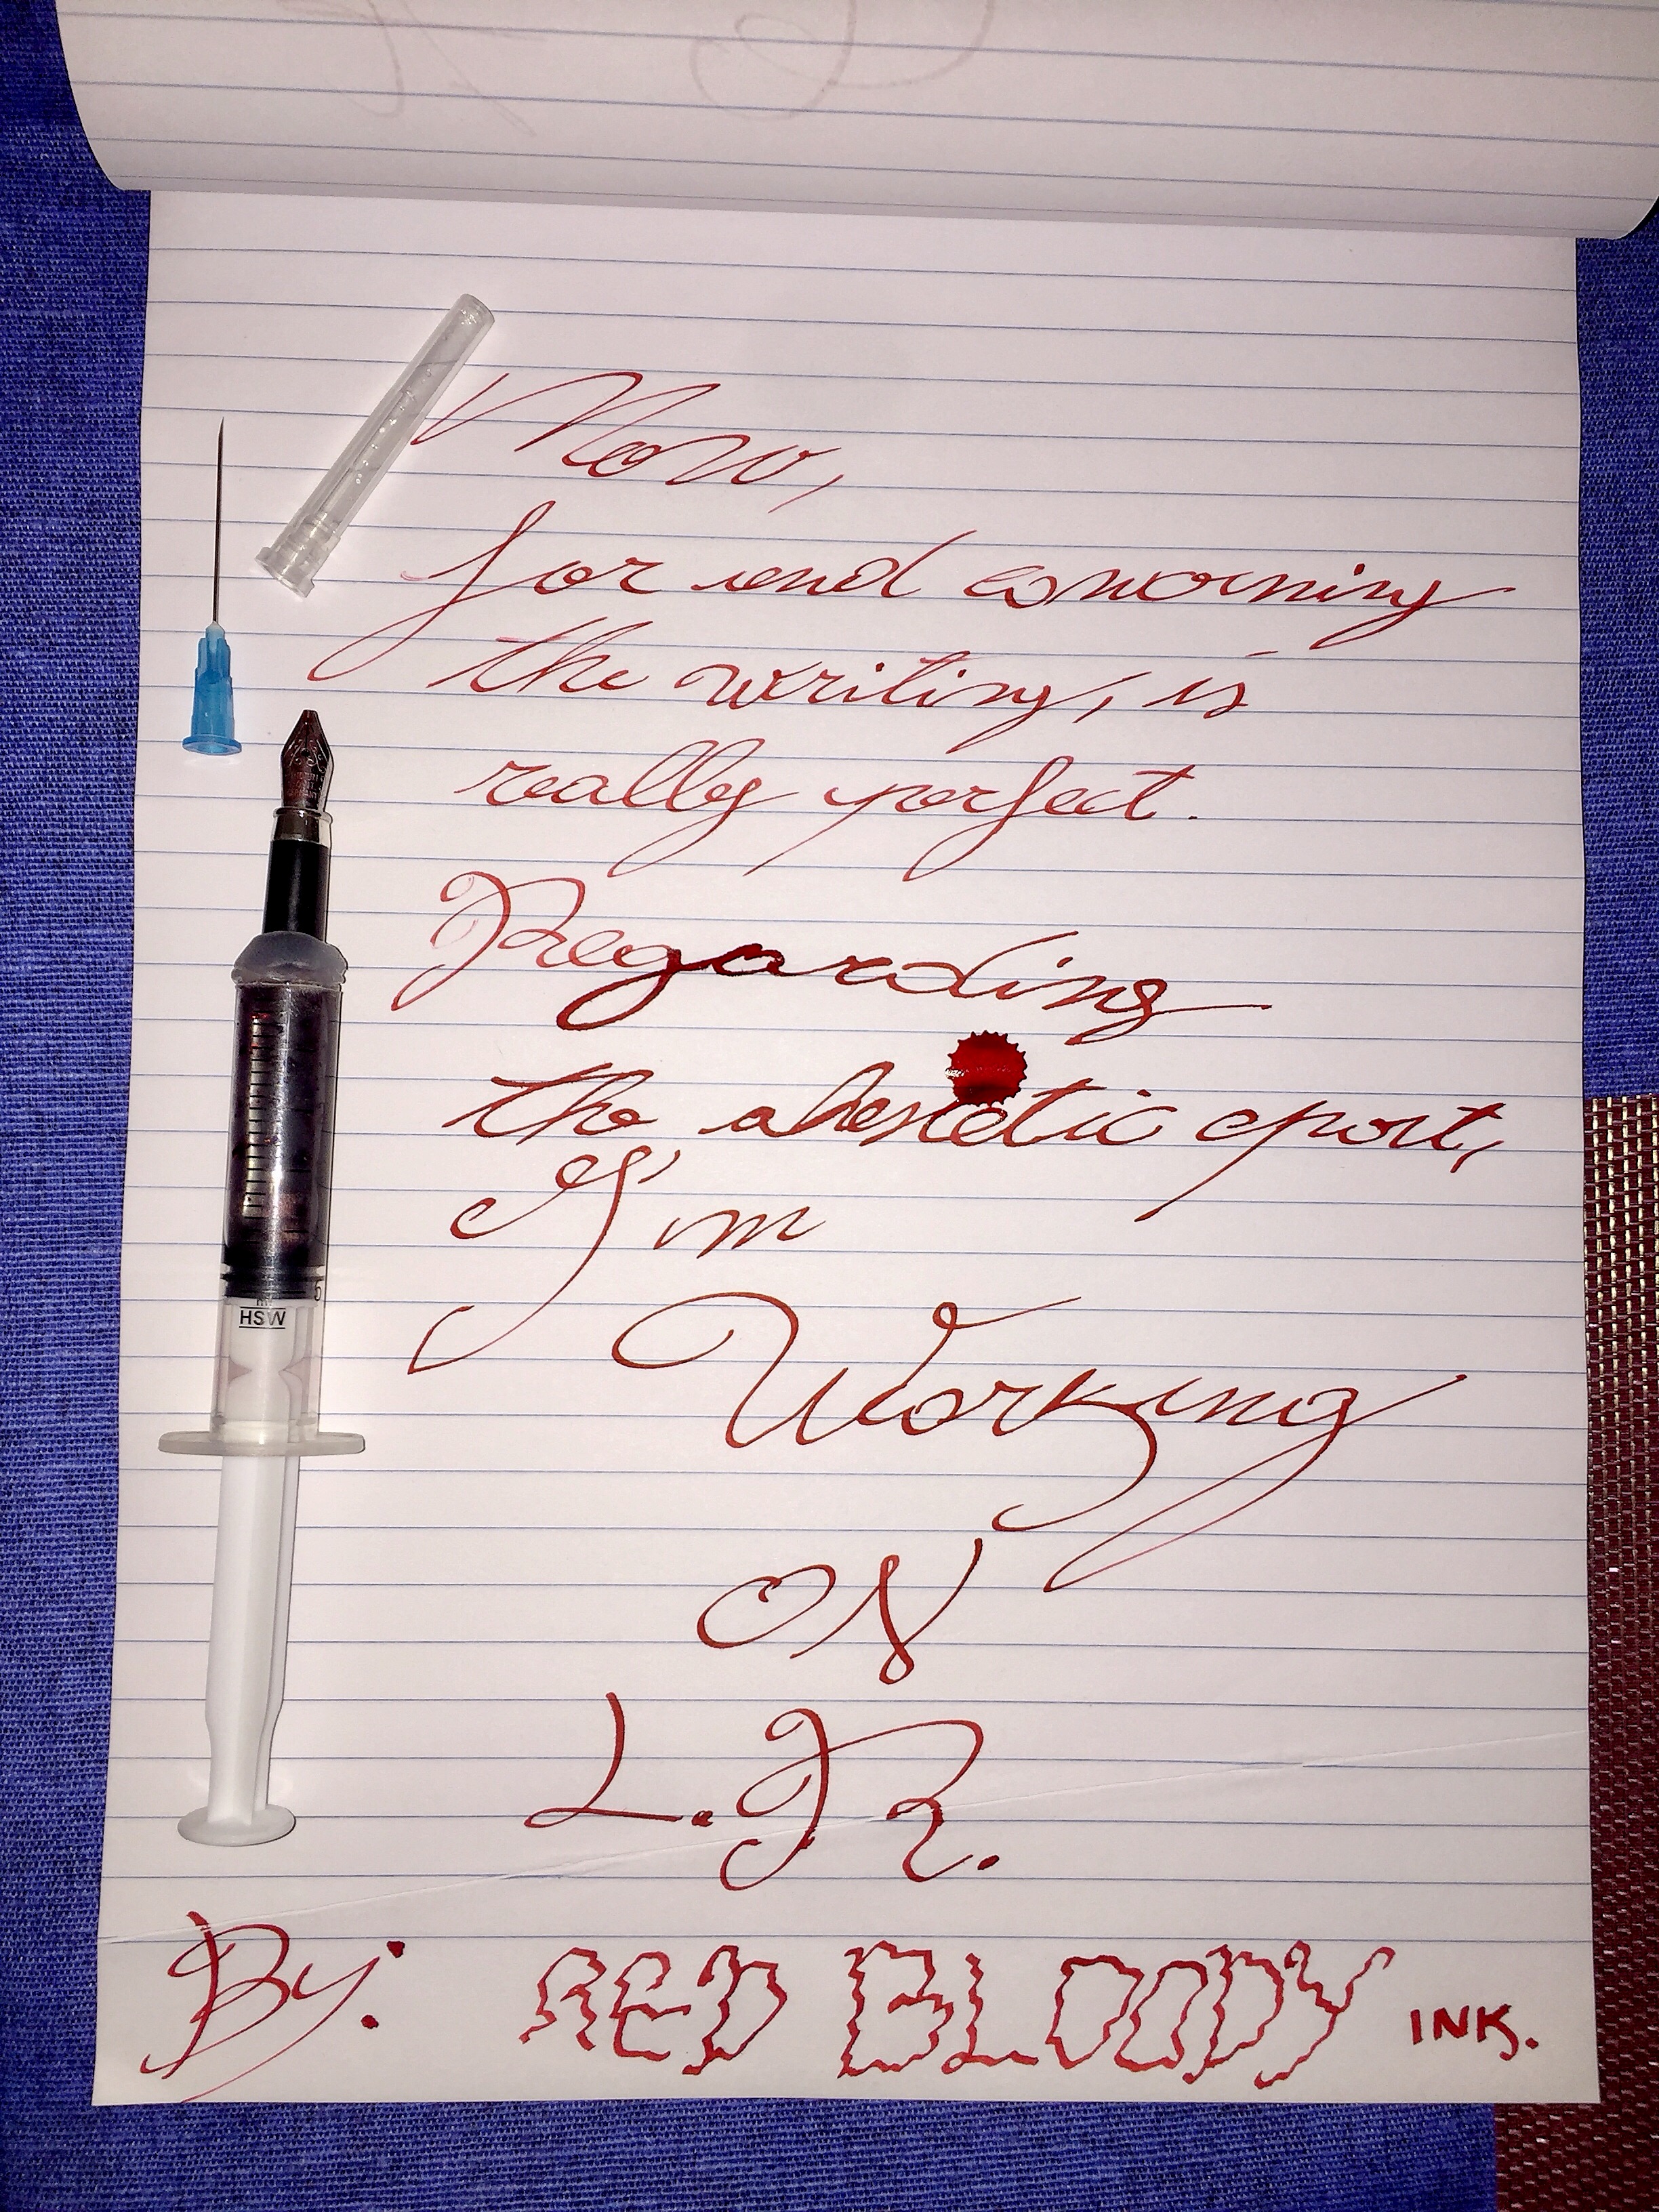 Now,
for and concerning
the writing, is
really perfect.
Regarding
the
I'm
Working
ON
L.R.
By: RED BLOODY INK.
HSW
5